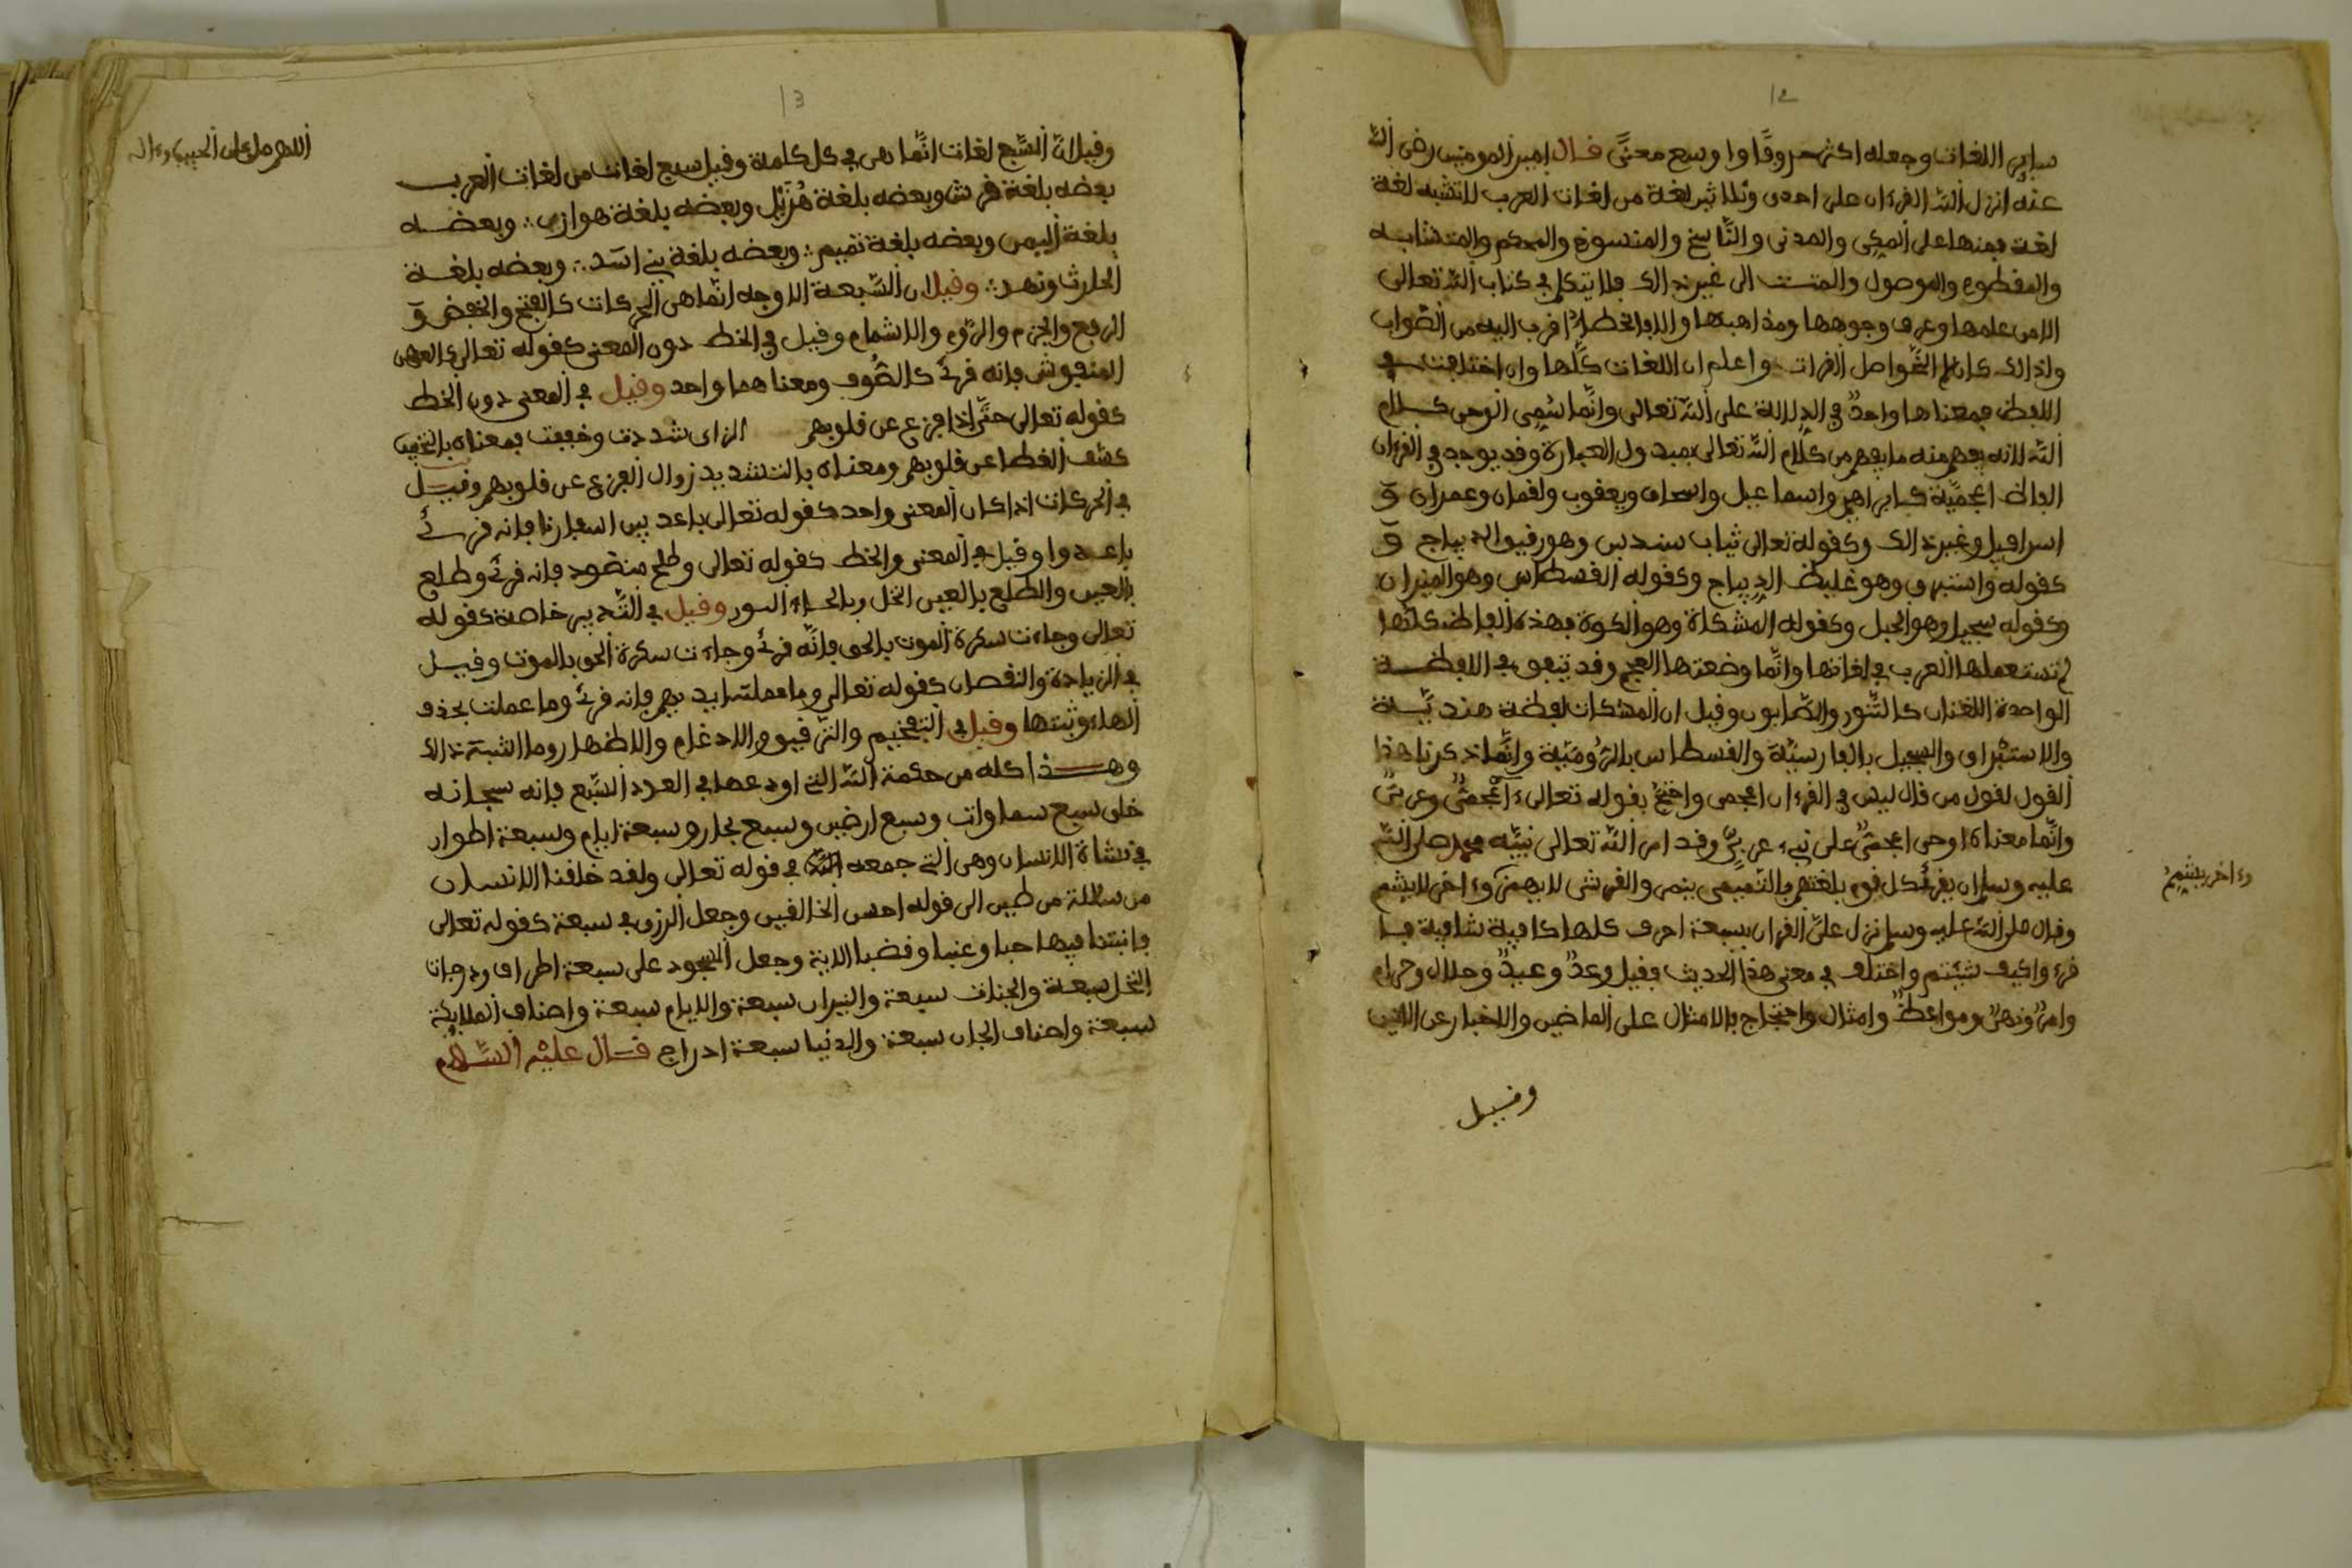 12
سابر اللغات وجعله اكثر حروفا واوسع معنى قال امير المومنين رضى الله
عنه انزل الله القرءان على احدى وثلاثين لغة من لغات العرب لا تشبه لغة
لغة فمنها على المكى والمدنى والناسخ والمنسوخ والمحكم والمتشابه
والمقطوع والموصول والمتـ الى غير ذالك فلا يتكلم فى كتاب الله تعالى
الا من علمها وعرف وجوهها ومذاهبها والا فالخطأ اقرب اليه من الصواب
ولذالك كان اصل القراءت واعلم ان اللغات كلها وان اختلفت فى
اللفظ فمعناها واحد فى الدلالة على الله تعالى وانما سمى الوحى كلام
الله لانه يفهم منه ما يفهم من كلام الله تعالى بمدلول العبارة وقد يوجد فى القرءان
الفاظ اعجمية كابراهيم واسماعيل واسحاق ويعقوب ولقمان وعمران و
اسرافيل وغير ذالك وكقوله تعالى ثياب سندس وهو رقيق الديباج و
كقوله واستبرق وهو غليظ الديباج وكقوله القسطاس وهو الميزان
وكقوله سجيل وهو الجبل وكقوله المشكاة وهو الكوة فهذه الفاظ كلها
لم تستعملها العرب فى لغاتها وانما وضعتها العجم وقد تتفق فى اللفظة
الواحدة اللغتان كالتنور والصابون وقيل ان المشكات لفظة هندية
والاستبراق والسجيل بالفارسية والقسطاس بالرومية وانما ذكرنا هذا
القول لقول من قال ليس فى القرءان اعجمى واحتج بقوله تعالى ءاعجمى وعربى
وانما معناه اوحى اعجمى على نبىء عربى وقد امر الله تعالى نبيه محمد صلى الله
عليه وسلم ان يقرئ كل قوم بلغتهم فالتميمى ينمر والقرشى لا يهمز وءاخر لا يشم
وقال صلى الله عليه وسلم نزل على القران بسبعة احرف كلها كافية شافية فا
قرءوا كيف شيتم واختلف فى معنى هذا الحديث فقيل وعد وعيد وحلال وحرام
وامر ونهى ومواعظ وامثال واحتجاج بالامثال على الماضين والاخبار عن الاتين
وقيل
وءاخر يشم
13
وقيل ان السبع لغات انما هى فى كل كلمة وقيل سبع لغات من لغات العرب
بعضه بلغة قريش وبعضه بلغة هذيل وبعضه بلغة هوازن ؞ وبعضه
بلغة اليمن وبعضه بلغة تميم ؞ وبعضه بلغة بنى اسد ؞ وبعضه بلغة
الحارث ونهد ؞ وقيل ان السبعة الاوجه انما هى الحركات كالفتح والخفض و
الرفع والجزم والروم والاشمام وقيل فى الخط دون المعنى كقوله تعالى كالعهن
المنفوش فانه قرئ كالصوف ومعناهما واحد وقيل فى المعنى دون الخط
كقوله تعالى حتى اذا فزع عن قلوبهم الزاى شددت وخففت فمعناه بالتخفيف
كشف الغطا عن قلوبهم ومعناه بالتشديد زوال الفزع عن قلوبهم وقيل
فى الحركات اذا كان المعنى واحد كقوله تعالى باعد بين اسفارنا فانه قرئ
باعدوا وقيل فى المعنى والخط كقوله تعالى وطلح منضود فانه قرئ وطلع
بالعين والطلع بالعين النخل وبالحاء السور وقيل فى التدبير خاصة كقوله
تعالى وجاءت سكرة الموت بالحق فانه قرئ وجاءت سكرة الحق بالموت وقيل
فى الزيادة والنقصان كقوله تعالى وما عملته ايديهم فانه قرئ وما عملت بحذف
الهاء وثبتها وقيل فى التفخيم والترقيق والادغام والاظهار وما اشبه ذالك
وهذا كله من حكمة الله التى اودعها فى العدد السبع فانه سبحانه
خلق سبع سماوات وسبع ارضين وسبع بحار وسبعة ايام وسبعة اطوار
فى نشاة الانسان وهى التى جمعه الله فى قوله تعالى ولقد خلقنا الانسان
من سلالة من طين الى قوله احسن الخالقين وجعل الرزق فى سبعة كقوله تعالى
فانبتنا فيها حبا وعنبا وقضبا الاية وجعل السجود على سبعة اطراف ودرجات
النخل سبعة والجنات سبعة والنيران سبعة والايام سبعة واصناف الملايكة
سبعة واصناف الجان سبعة والدنيا سبعة ادراج قال عليه السلام
اللهم صل على الحبيب وءاله